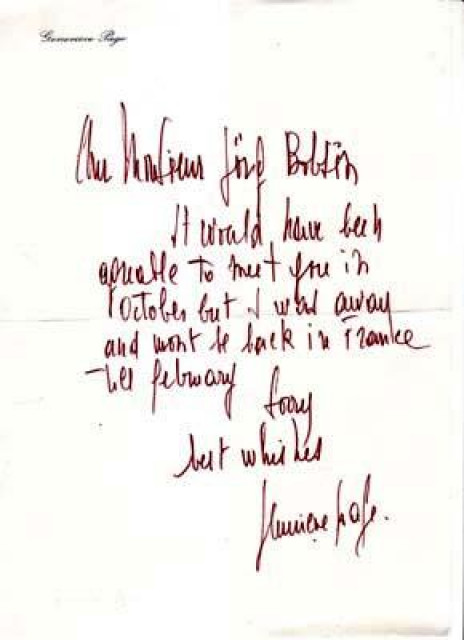 Geneviève Page
Cher Monsieur Jörg Bobsin
It would have been
agreable to meet you in
October but I was away
and wont be back in France
till february
Sorry
best whishes
Geneviève Page.